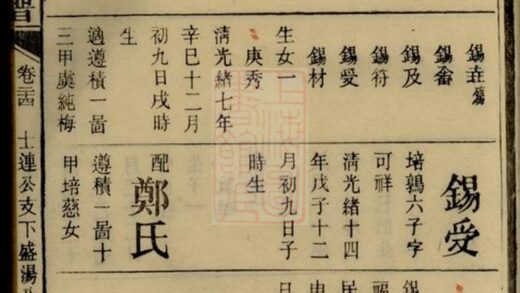 錫垚殤
錫畬
錫及
錫符
錫愛
錫材
生女一
庚秀
清光緒七年
辛巳十二月
初九日戌時
生
適遵積一啚
三甲虞純梅
錫受
培鶉六子字
可祥
清光緒十四
年戊子十二
月初九日子
時生
配
鄭氏
遵積一啚十
甲培慈女
士連公支下盛湯